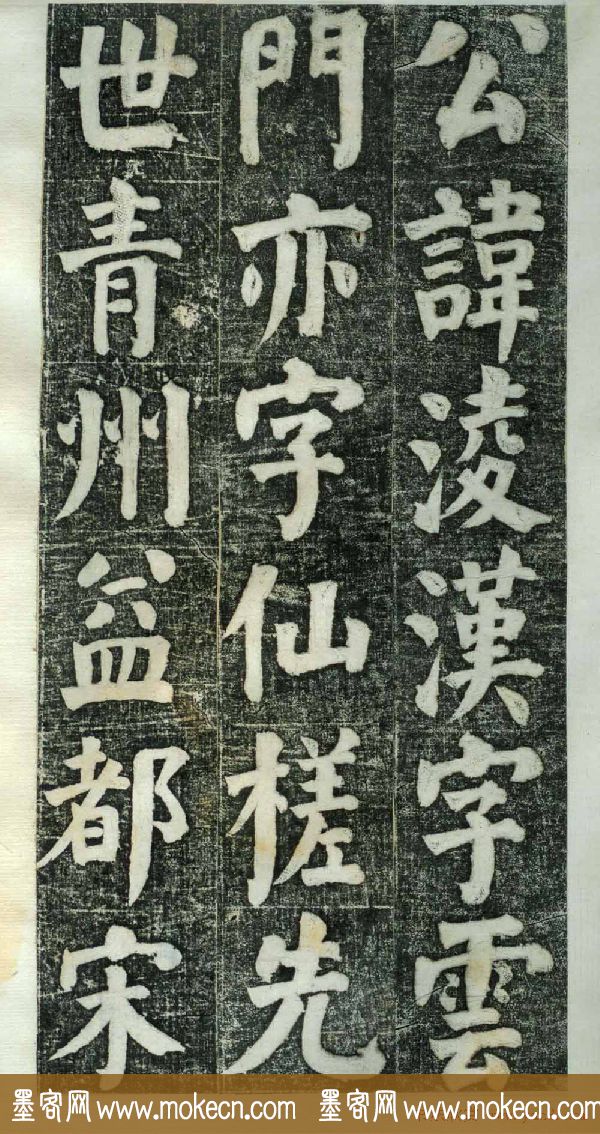 公諱淩漢字雲
門亦字仙槎先
世青州益都宋
墨客网 www.mokecn.com 墨客网 www.mokecn.com